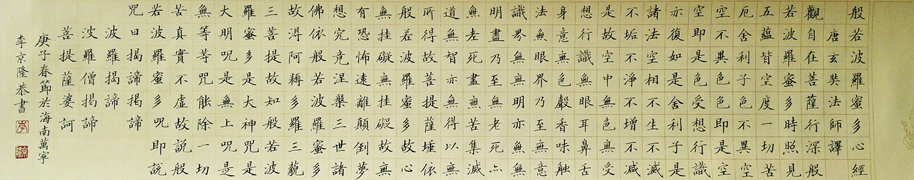 般若波羅蜜多心經
唐玄奘法師譯
觀自在菩薩行深般
若波羅蜜多時照見
五蘊皆空度一切苦
厄舍利子色不異空
空不異色色即是空
空即是色受想行識
亦復如是舍利子是
諸法空相不生不滅
不垢不淨不增不減
是故空中無色無受
想行識無眼耳鼻舌
身意無色聲香味觸
法無眼界乃至無意
識界無無明亦無無
明盡乃至無老死亦
無老死盡無苦集滅
道無智亦無得以無
所得故菩提薩埵依
般若波羅蜜多故心
無掛礙無掛礙故無
有恐怖遠離顛倒夢
想究竟涅槃三世諸
佛依般若波羅蜜多
故得阿耨多羅三藐
三菩提故知般若波
羅蜜多是大神咒是
大明咒是無上咒是
無等等咒能除一切
苦真實不虛故說般
若波羅蜜多咒即說
咒曰揭諦揭諦
波羅揭諦
波羅僧揭諦
菩提薩婆訶
庚子春節於海南萬寧
李京隆恭書